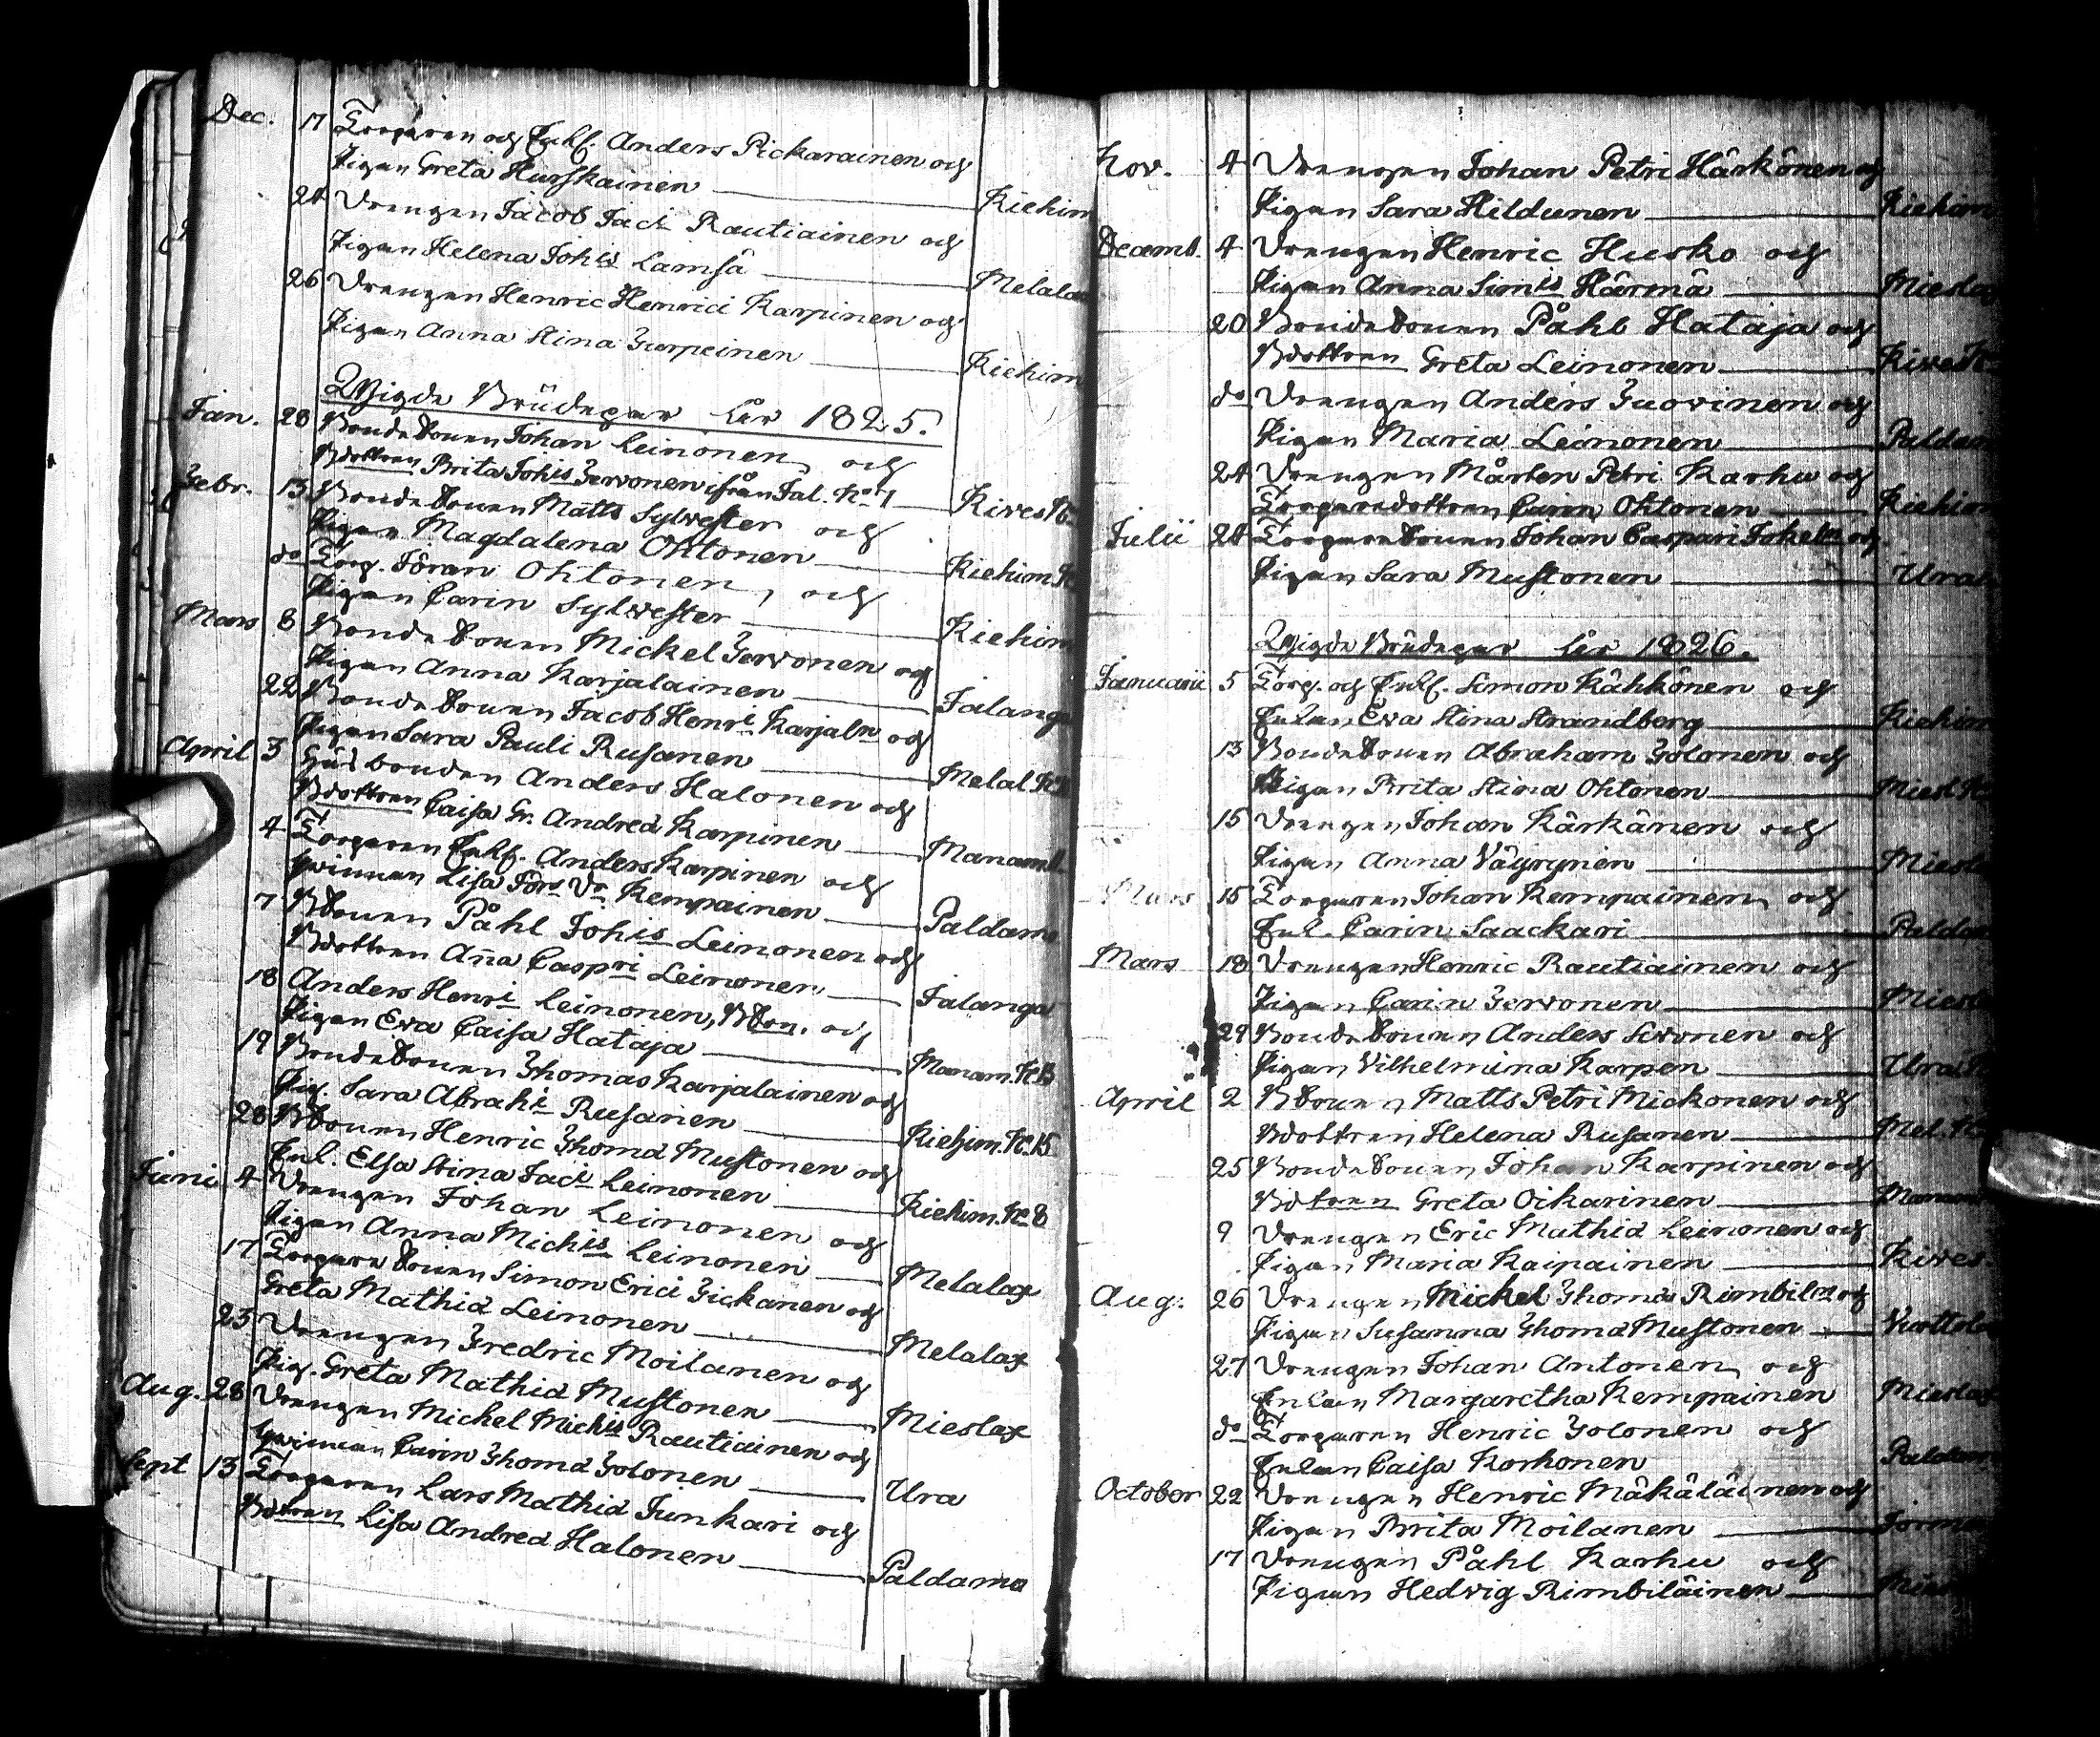 Dec. 17 Torparen och Enkl. Anders Pickarainen och
Pigan Greta Hurskainen Kiehim
24 Drengen Jacob Jaci Rautiainen och
Pigan Helena Johis Lamsä Melalax
26 Drengen Henric Henrici Karpinen och
Pigan Anna Stina Gurpeinen Kiehim
Wigde Brudepar År 1825.
Jan. 28 Bondesonen Johan Leinonen, och
Bdottren Brita Johis Jervonen ifrån Jal. No 7 Kives No
Febr. 13 Bondesonen Matts Sylvester och
Pigan Magdalena Ohtonen Kiehim N
do Torp. Jöran Ohtonen, och
Pigan Carin Sylwester Kiehim
Mars 8 Bondesonen Mickel Jervonen och
Pigan Anna Karjalainen Jalanga
22 Bondesonen Jacob Henri Karjaln och
Pigan Sara Pauli Rusanen Melal. N
April 3 Husbonden Anders Halonen och
Bdottren Caisa Gr. Andreæ Karpinen Manamr.
4 Torparen Enkl. Anders Karpinen och
Qvinnan Lisa Förs Dr Kempainen Paldamo
7 Bsonen Påhl Johis Leinonen och
Bdottren Aña Caspri Leinonen Jalanga
18 Anders Henri Leinonen, Bson. och
Pigan Eva Caisa Hataja Manam. N 13
19 Bondesonen Thomas Karjalainen och
Pig. Sara Abrahi Rusanen Kiehim. N. 15
28 Bsonen Henric Thomæ Mustonen och
Enl. Elsa Stina Jaci Leinonen Kiehim. No 8
Junii 4 Drengen Johan Leinonen och
Pigan Anna Michis Leinonen Melalax
17 Torpare Sonen Simon Erici Tickanen och
Greta Mathiæ Leinonen Melalax
23 Drengen Fredric Moilanen och
Pig. Greta Mathiæ Mustonen Mieslax
Aug. 28 Drengen Michel Michis Rautiainen och
Qwinnan Carin Thomæ Tolonen Ura
Sept 13 Torparen Lars Mathiæ Junkari och
Bdtren Lisa Andreæ Halonen Paldamo
Nov. 4 Drengen Johan Petri Härkönen och
Pigan Sara Hildunen Kiehim
Decemb. 4 Drengen Henric Husko och
Pigan Anna Simis Härmä Mieslax
20 Bondesonen Påhl Hataja och
Bdottren Greta Leinonen Kives N
do Drengen Anders Juovinen och
Pigan Maria Leinonen Paldam
24 Drengen Mårten Petri Karhu och
Torparedottren Carin Ohtonen Kiehim
Julii 24 Torparesonen Johan Caspari Jokeln och
Pigan Sara Mustonen Ura
Wigde Brudepar År 1826.
Januarii 5 Torp. och Enkl. Simon Kähkönen och
Enkan Eva Stina Strandberg Kiehim
13 Bondesonen Abraham Tolonen och
Pigan Brita Stina Ohtonen Miesl. N
15 Drengen Johan Kärkänen och
Pigan Anna Väyrynen Miesl
Mars 15 Torparen Johan Kempainen, och
Enl. Carin Saackari Paldam
Mars 18 Drengen Henric Rautiainen och
Pigan Carin Jervonen Miesl
29 Bondesonen Anders Sivonen och
Pigan Vilhelmina Karpen Ura N
April 2 Bsonen Matts Petri Mickonen och
Bdottren Helena Rusanen Mel. N
25 Bondesonen Johan Karpinen och
Bdtren Greta Oikarinen Manam
9 Drengen Eric Mathiæ Leinonen och
Pigan Maria Kaipainen Kives
Aug. 26 Drengen Mickel Thomæ Rimbiln och
Pigan Susanna Thomæ Mustonen Vuottol
27 Drengen Johan Antonen, och
Enkan Margaretha Kempainen Mieslax
do Torparen Henric Tolonen och
Enkan Caisa Korhonen Paldam
October 22 Drengen Henric Mäkäläinen och
Pigan Brita Moilanen Jorma
17 Drengen Påhl Karhu och
Pigan Hedvig Rimbiläinen Miesl